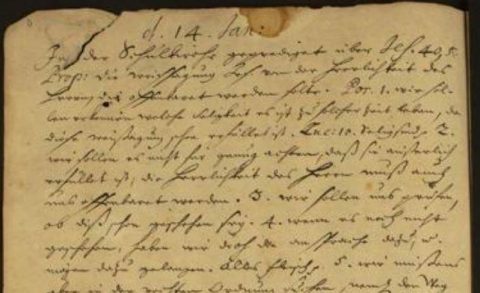 d. 14. Jan:
In der Schulkirche geprediget über Jes. 40, 5.
Prop: die weissagung Jes. von der Herrlichkeit des
Herrn, die offenbaret werden solte. Por. 1. wir sol-
len erkennen welche Seligkeit es ist zu solcher Zeit leben, da
diese weissagung schon erfüllet ist. Luc: 10. Selig sind, 2.
wir sollen es nicht für genug achten, daß sie äuserlich
erfüllet ist, die Herrlichkeit des Herrn muß auch
uns offenbaret werden. 3. wir sollen uns prüfen,
ob diß schon geschehen sey. 4. wenn es noch nicht
geschehen, haben wir doch die ansprache dazu, u.
mögen dazu gelangen. Alles fleisch, 5. wir müssens
aber in der rechten Ordnung suchen, den Weg